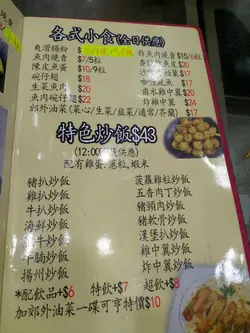 各式小食(全日供應)
爽滑腸粉
魚肉燒賣 $7/5粒
陳皮魚蛋 $10/9粒
碗仔翅 $18
生菜魚肉 $20
魚肉碗仔翅 $22
郊外油菜(菜心/生菜/韮菜/通菜/芥蘭) $17
炸魚肉燒賣 $15/6粒
$17
$17
鹵水雞中翼 $24
炸雞中翼 $24
特色炒飯$43
(12:00 供應)
配有雞蛋、蔥粒、蝦米
豬扒炒飯
雞扒炒飯
牛扒炒飯
海鮮炒飯
牛炒飯
牛腩炒飯
揚州炒飯
菠蘿雞粒炒飯
五香肉丁炒飯
豬頸肉炒飯
豬軟骨炒飯
漢堡扒炒飯
雞中翼炒飯
炸中翼炒飯
*配飲品+$6 特飲+$7 超飲+$8
加郊外油菜一碟可亨特價$10